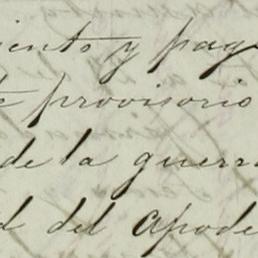 iento y pag
e provisorio
de la guerra
d del apode